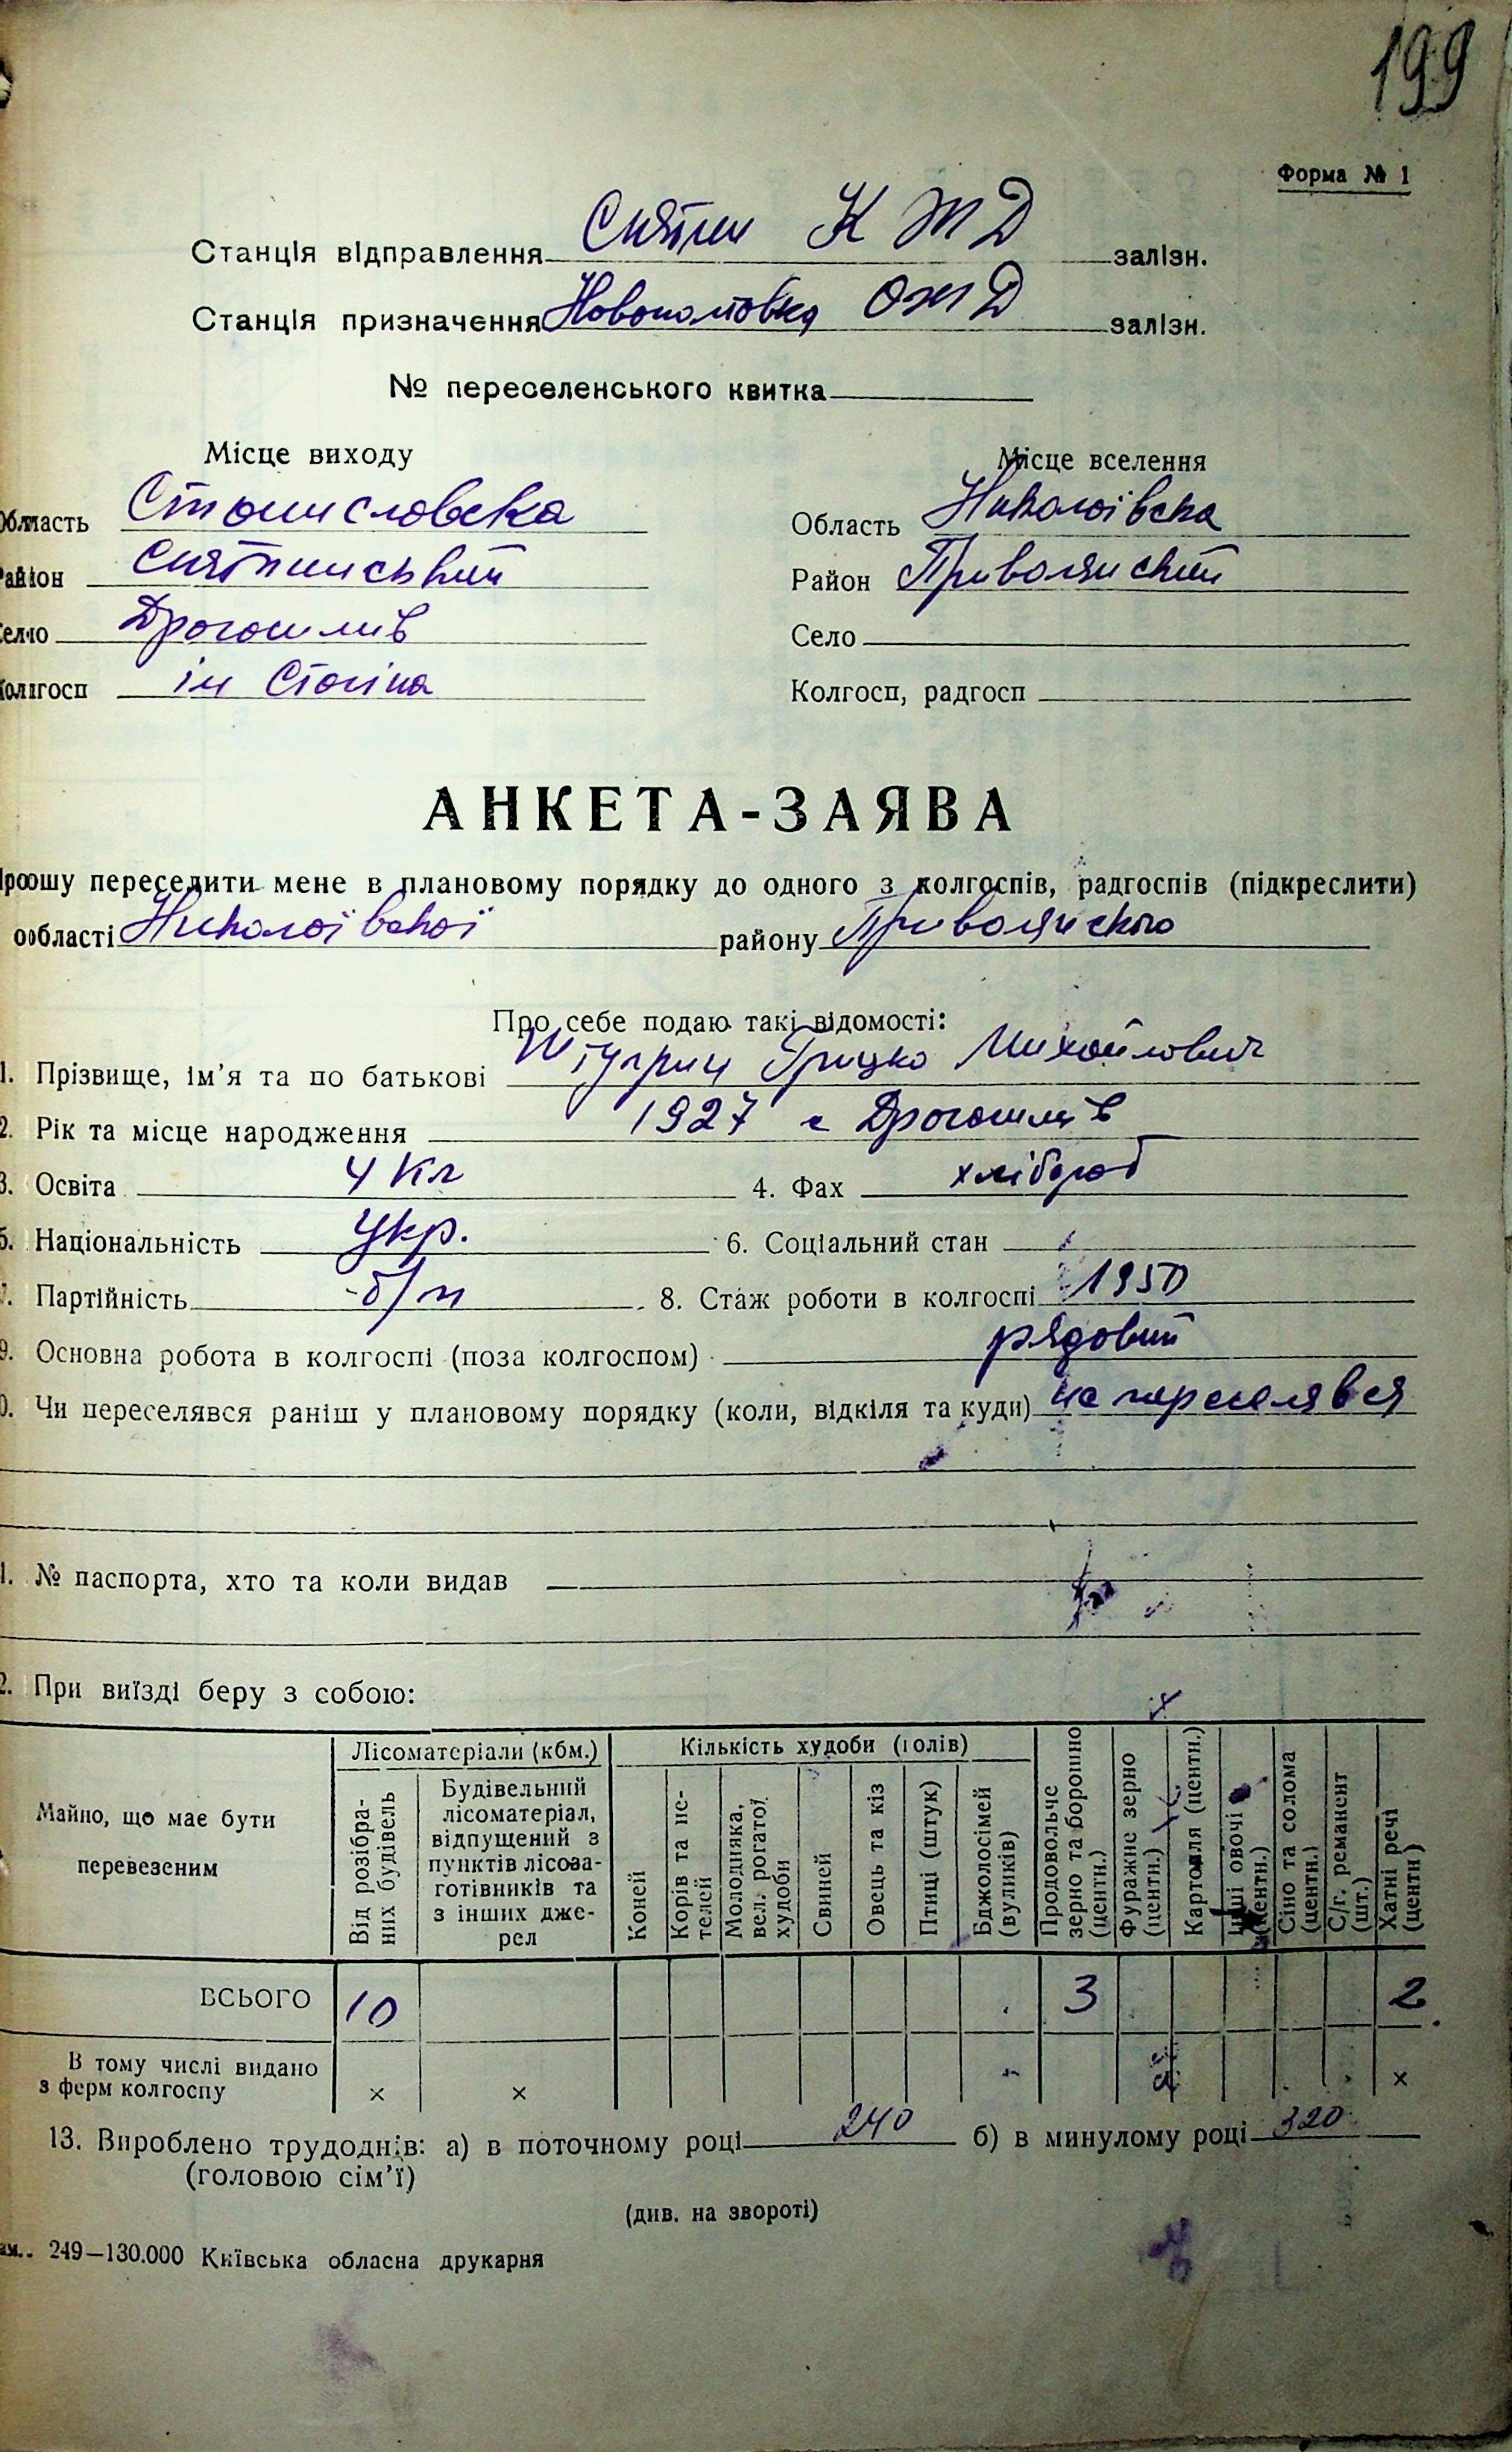 199
Форма № 1
Станція відправлення Снятин К Ж Д залізн.
Станція призначення Новополтовка О Ж Д залізн.
№ переселенського квитка
Місце виходу
Місце вселення
Область Станиславска
Область Николаївска
Район Снятинський
Район Привольнский
Село
Село
Колгосп ім Сталіна
Колгосп, радгосп
АНКЕТА-ЗАЯВА
Прошу переселити мене в плановому порядку до одного з колгоспів, радгоспів (підкреслити)
області Николаївскої району Привольнского
Про себе подаю такі відомості:
1. Прізвище, ім’я та по батькові Грицко Михайлович
2. Рік та місце народження 1927 с
3. Освіта 4 Кл 4. Фах хлібороб
5. Національність Укр. 6. Соціальний стан
7. Партійність б/п 8. Стаж роботи в колгоспі 1950
9. Основна робота в колгоспі (поза колгоспом) рядовий
0. Чи переселявся раніш у плановому порядку (коли, відкіля та куди) не переселявся
1. № паспорта, хто та коли видав
2. При виїзді беру з собою:
Майно, що має бути перевезеним
Лісоматеріали (кбм.)
Кількість худоби (голів)
Від розібраних будівель
Будівельний лісоматеріал, відпущений з пунктів лісозаготівників та з інших джерел
Коней
Корів та нетелей
Молодняка, вел. рогатої худоби
Свиней
Овець та кіз
Птиці (штук)
Бджолосімей (вуликів)
Продовольче зерно та борошно (центн.)
Фуражне зерно (центн.)
Картопля (центн.)
Інші овочі (центн.)
Сіно та солома (центн.)
С/г. реманент (шт.)
Хатні речі (центн)
ВСЬОГО 10 3 2
В тому числі видано
з ферм колгоспу × × ×
13. Вироблено трудоднів: а) в поточному році 240 б) в минулому році 320
(головою сім’ї)
(див. на звороті)
ам.. 249—130.000 Київська обласна друкарня